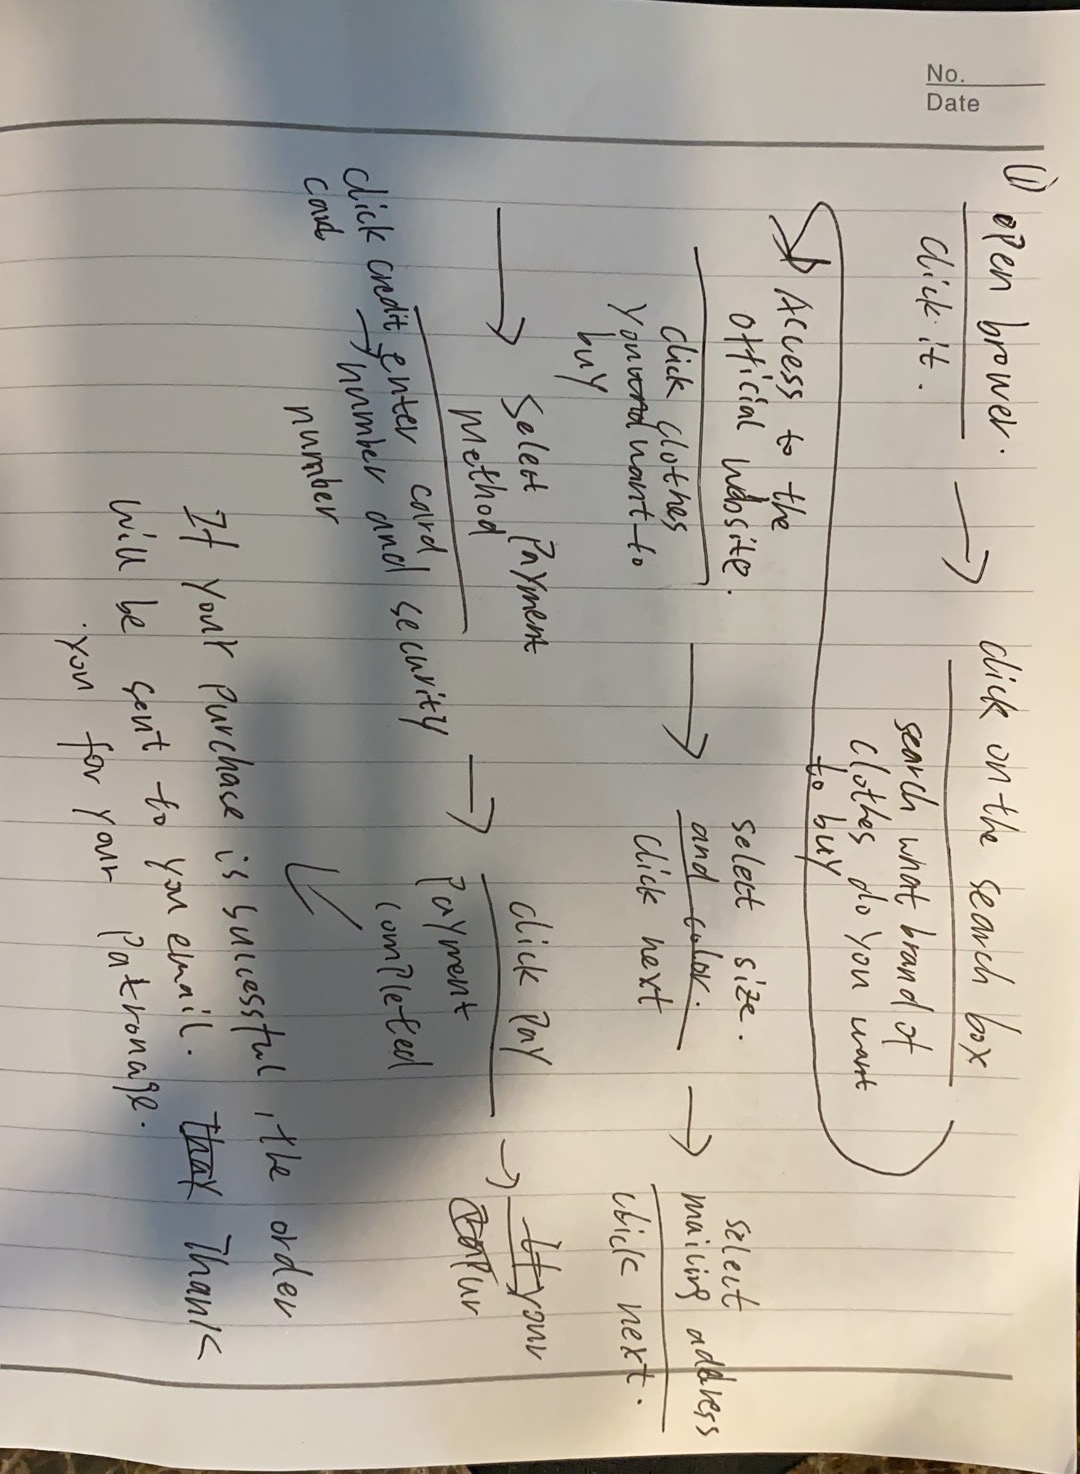 No.
Date
(1) open brower.
click it.
click on the search box
search what brand of
clothes do you want
to buy
Access to the
official website.
click clothes
you want to
buy
select size.
and color.
click next
select
mailing address
click next.
Select Payment
Method
click credit
card
enter card
number and security
number
click Pay
Payment
completed
If your
Pur
If your purchase is successful, the order
will be sent to you email. that Thank
you for your patronage.